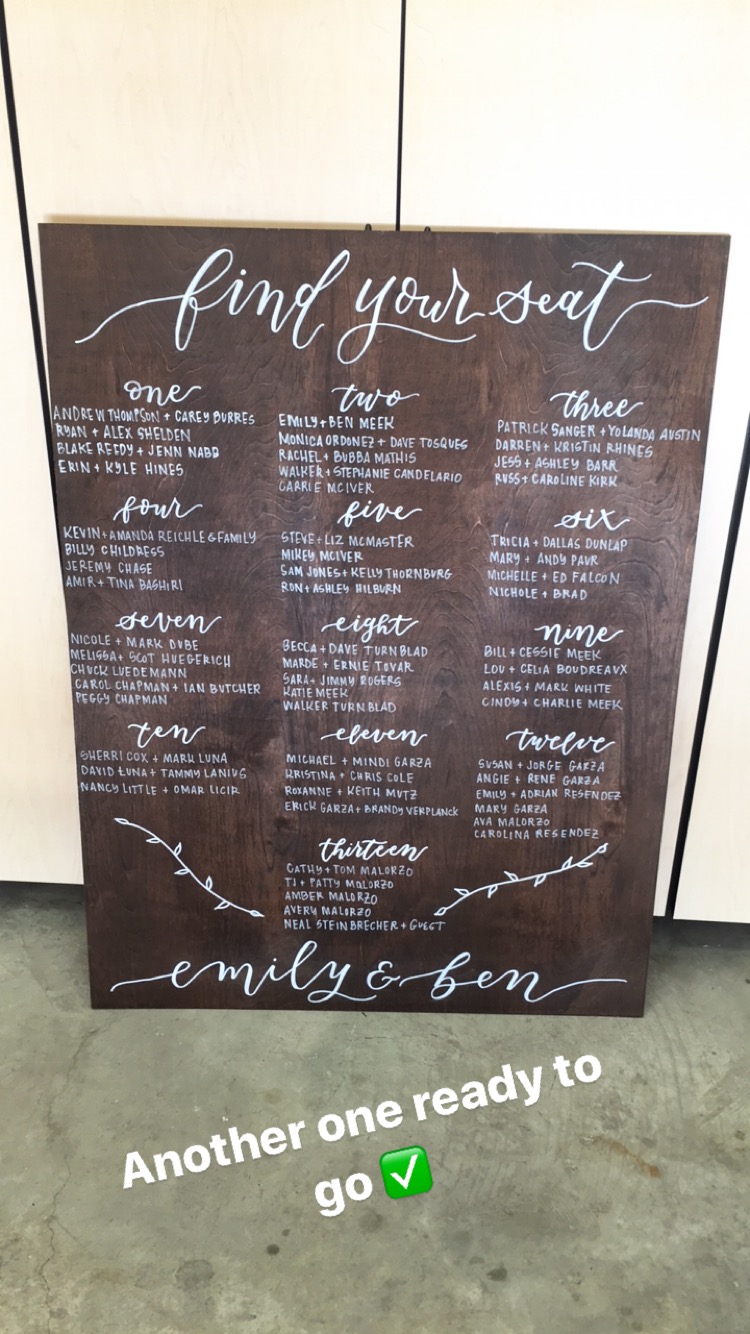 find your seat
one
ANDREW THOMPSON + CAREY BURRES
RYAN + ALEX SHELDEN
BLAKE REEDY + JENN NABB
ERIN + KYLE HINES
two
EMILY + BEN MEEK
MONICA ORDONEZ + DAVE TOSQUES
RACHEL + BUBBA MATHIS
WALKER + STEPHANIE CANDELARIO
CARRIE MCIVER
three
PATRICK SANGER + YOLANDA AUSTIN
DARREN + KRISTIN RHINES
JESS + ASHLEY BARR
RUSS + CAROLINE KIRK
four
KEVIN + AMANDA REICHLE & FAMILY
BILLY CHILDRESS
JEREMY CHASE
AMIR + TINA BASHIRI
five
STEVE + LIZ MCMASTER
MIKEY MCIVER
SAM JONES + KELLY THORNBURG
RON + ASHLEY HILBURN
six
TRICIA + DALLAS DUNLAP
MARY + ANDY PAUR
MICHELLE + ED FALCON
NICHOLE + BRAD
seven
NICOLE + MARK DUBE
MELISSA + SCOT HUEGERICH
CHUCK LUEDEMANN
CAROL CHAPMAN + IAN BUTCHER
PEGGY CHAPMAN
eight
BECCA + DAVE TURNBLAD
MARDE + ERNIE TOVAR
SARA + JIMMY ROGERS
KATIE MEEK
WALKER TURNBLAD
nine
BILL + CESSIE MEEK
LOU + CELIA BOUDREAUX
ALEXIS + MARK WHITE
CINDY + CHARLIE MEEK
ten
SHERRI COX + MARK LUNA
DAVID LUNA + TAMMY LANIUS
NANCY LITTLE + OMAR LICIR
eleven
MICHAEL + MINDI GARZA
KRISTINA + CHRIS COLE
ROXANNE + KEITH MUTZ
ERICK GARZA + BRANDY VERPLANCK
twelve
SUSAN + JORGE GARZA
ANGIE + RENE GARZA
EMILY + ADRIAN RESENDEZ
MARY GARZA
AVA MALORZO
CAROLINA RESENDEZ
thirteen
CATHY + TOM MALORZO
TJ + PATTY MALORZO
AMBER MALORZO
AVERY MALORZO
NEAL STEINBRECHER + GUEST
emily & ben
Another one ready to
go ✅